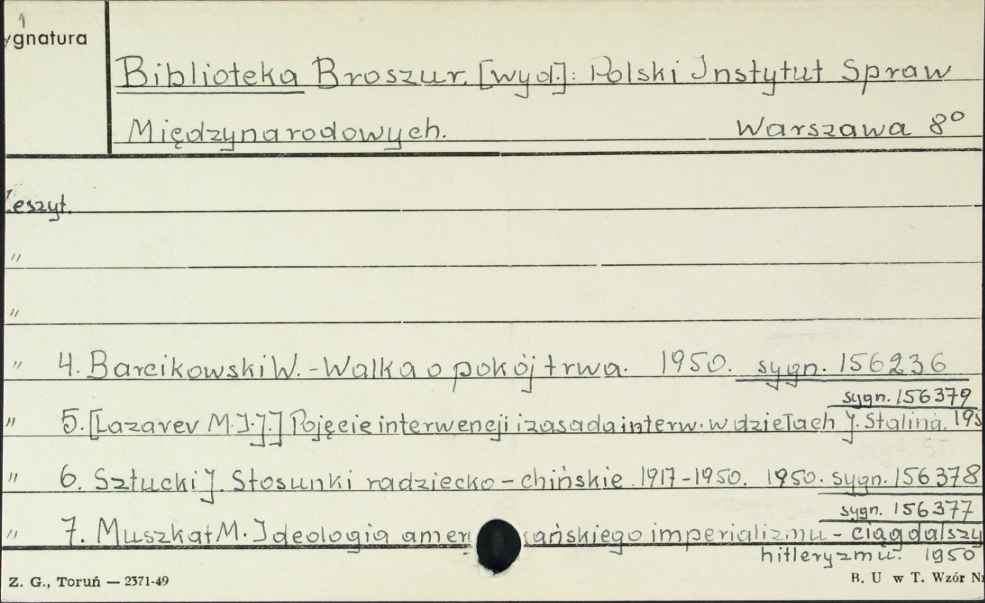 ygnatura
Biblioteka Broszur. [wyd.]: Polski Instytut Spraw
Międzynarodowych. Warszawa 8°
Zeszyt.
"
"
" 4. Barcikowski W. - Walka o pokój trwa. 1950. sygn. 156236
sygn. 156379
" 5. [Lazarev M.I.J.] Pojęcie interwencji i zasada interw. w dziełach J. Stalina. 195
" 6. Sztucki J. Stosunki radziecko - chińskie. 1917-1950. 1950. sygn. 156378
sygn. 156377
" 7. Muszkat M. Ideologia amer ańskiego imperializmu - ciąg dalszy
hitleryzmu. 1950
Z. G., Toruń — 2371-49 B. U w T. Wzór Nr